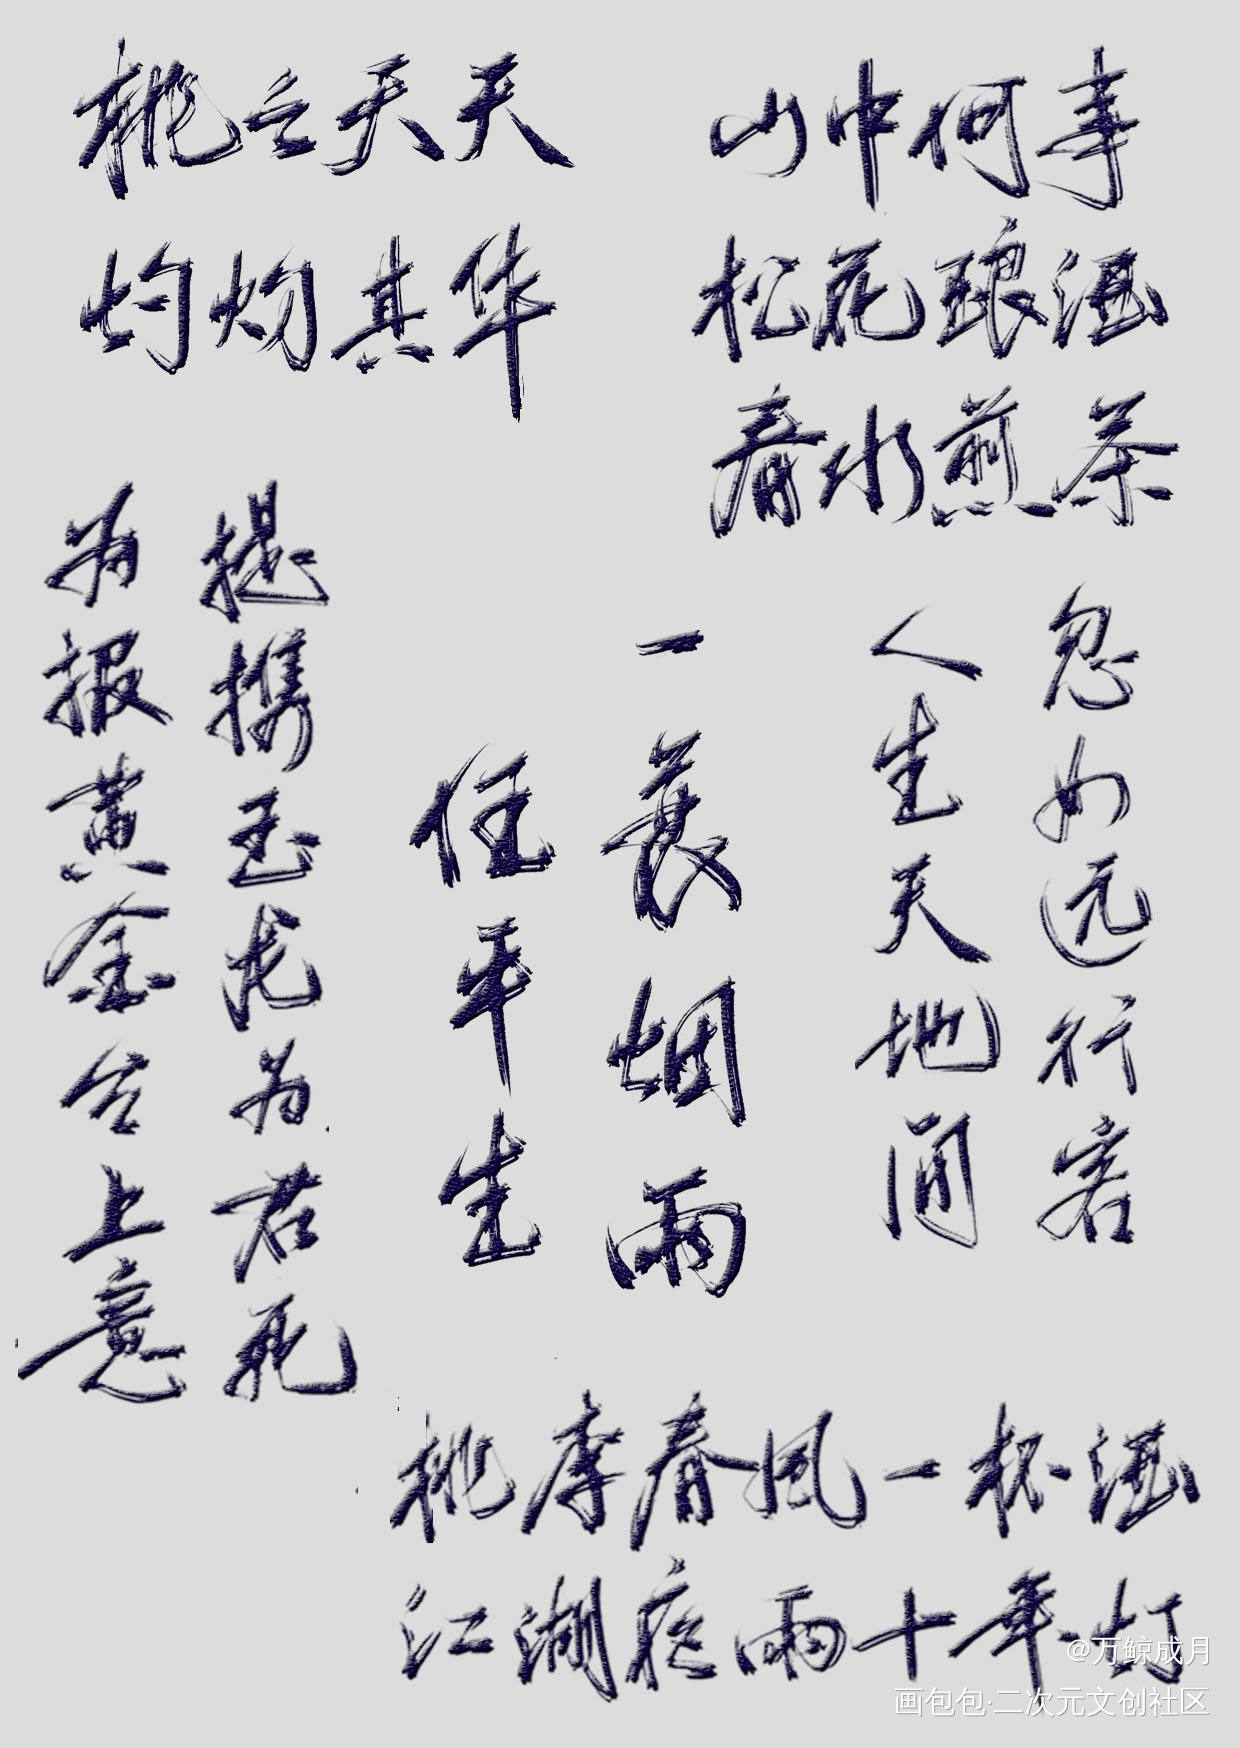 桃之夭夭
灼灼其华
山中何事
松花酿酒
春水煎茶
人生天地间
忽如远行客
一蓑烟雨
任平生
为报黄金台上意
提携玉龙为君死
桃李春风一杯酒
江湖夜雨十年灯
@万鲸成月
画包包·二次元文创社区